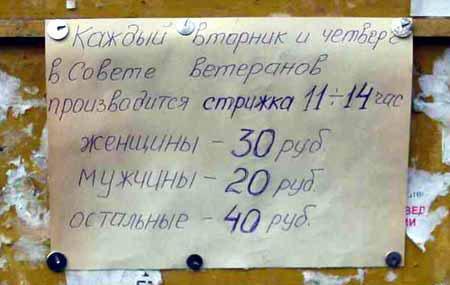 Каждый вторник и четверг
в Совете ветеранов
производится стрижка 11÷14 час
женщины – 30 руб.
мужчины – 20 руб.
остальные – 40 руб.